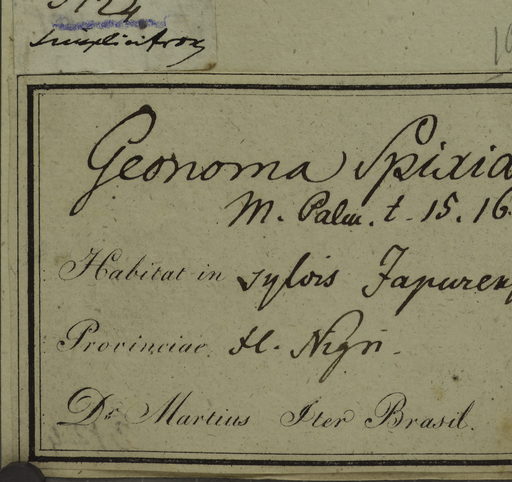 simplicifrons
Geonoma Spixia
M. Palm. t. 15. 16
Habitat in sylvis Japurens
Provinciae fl. Nigri.
Dr. Martius Iter Brasil.